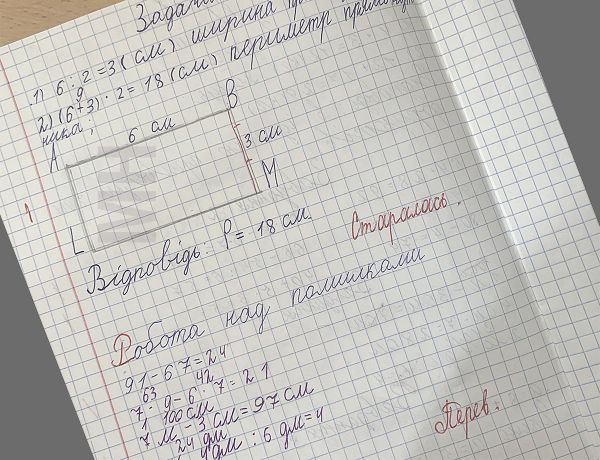 Задача
1) 6 : 2 = 3 (см) ширина
2) (6 + 3) · 2 = 18 (см) периметр прямокут
ника;
A B
6 см
3 см
L M
Відповідь: P = 18 см.
Старалась.
Робота над помилками
91 - 67 = 24
63 42
7 · 9 - 6 · 7 = 21
100 см
1 м - 3 см = 97 см
24 дм
: 6 дм = 4
Перев: